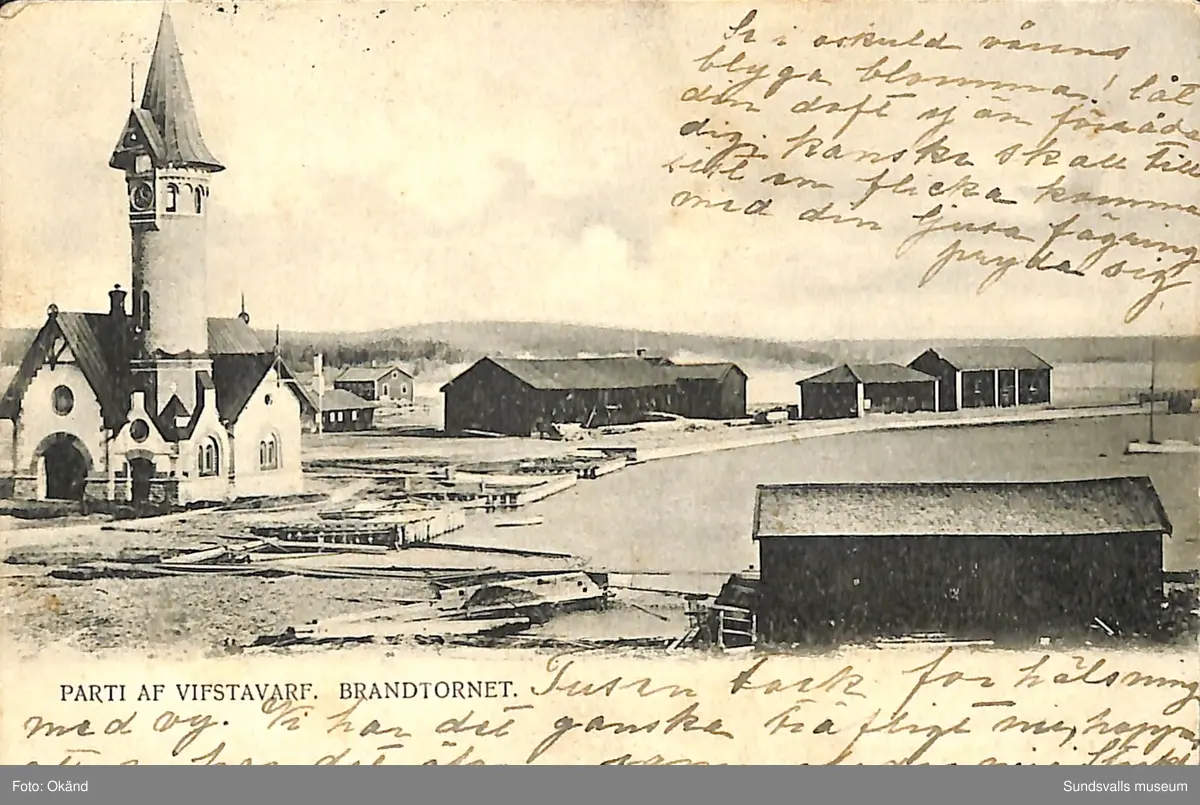 Se i oskuld vårens
blyga blomma! låt
din doft ej än förråda
dig, kanske skall till
sist en flicka komma
med din ljusa fägring
pryda sig,
PARTI AF VIFSTAVARF. BRANDTORNET.
Tusen tack för hälsning
med vy. Vi har det ganska träfligt nu, hoppas
att har det
Foto: Okänd
Sundsvalls museum